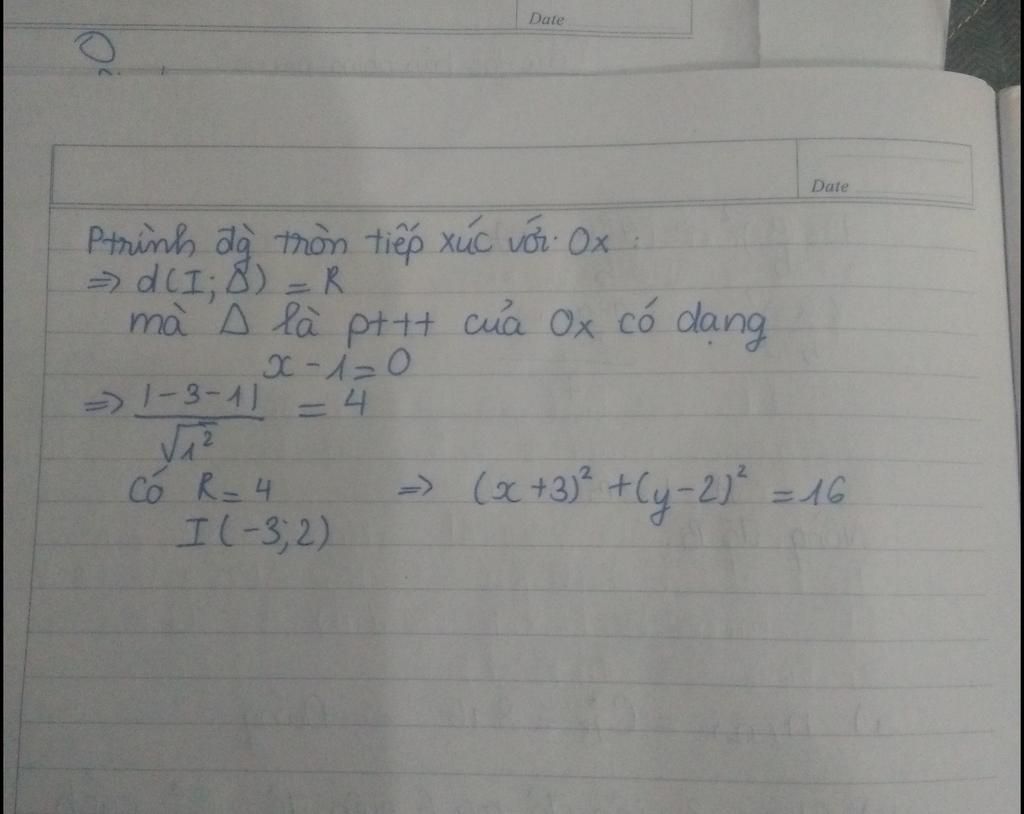 Date
Date
Ptrình đg̀ tròn tiếp xúc với Ox :
=> d(I; Δ) = R
mà Δ là pttt của Ox có dạng
x - 1 = 0
=> |-3-1| / √1² = 4
Có R = 4 => (x+3)² + (y-2)² = 16
I(-3; 2)